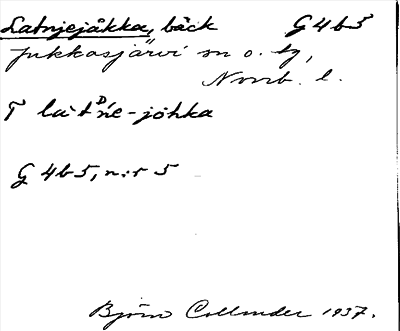 Latnjejåkka, bäck G4b5
Jukkasjärvi sn o. tg,
Norrb. l.
T la't ᴰńe-johka
G 4b5, n:r 5
Björn Collinder 1937.